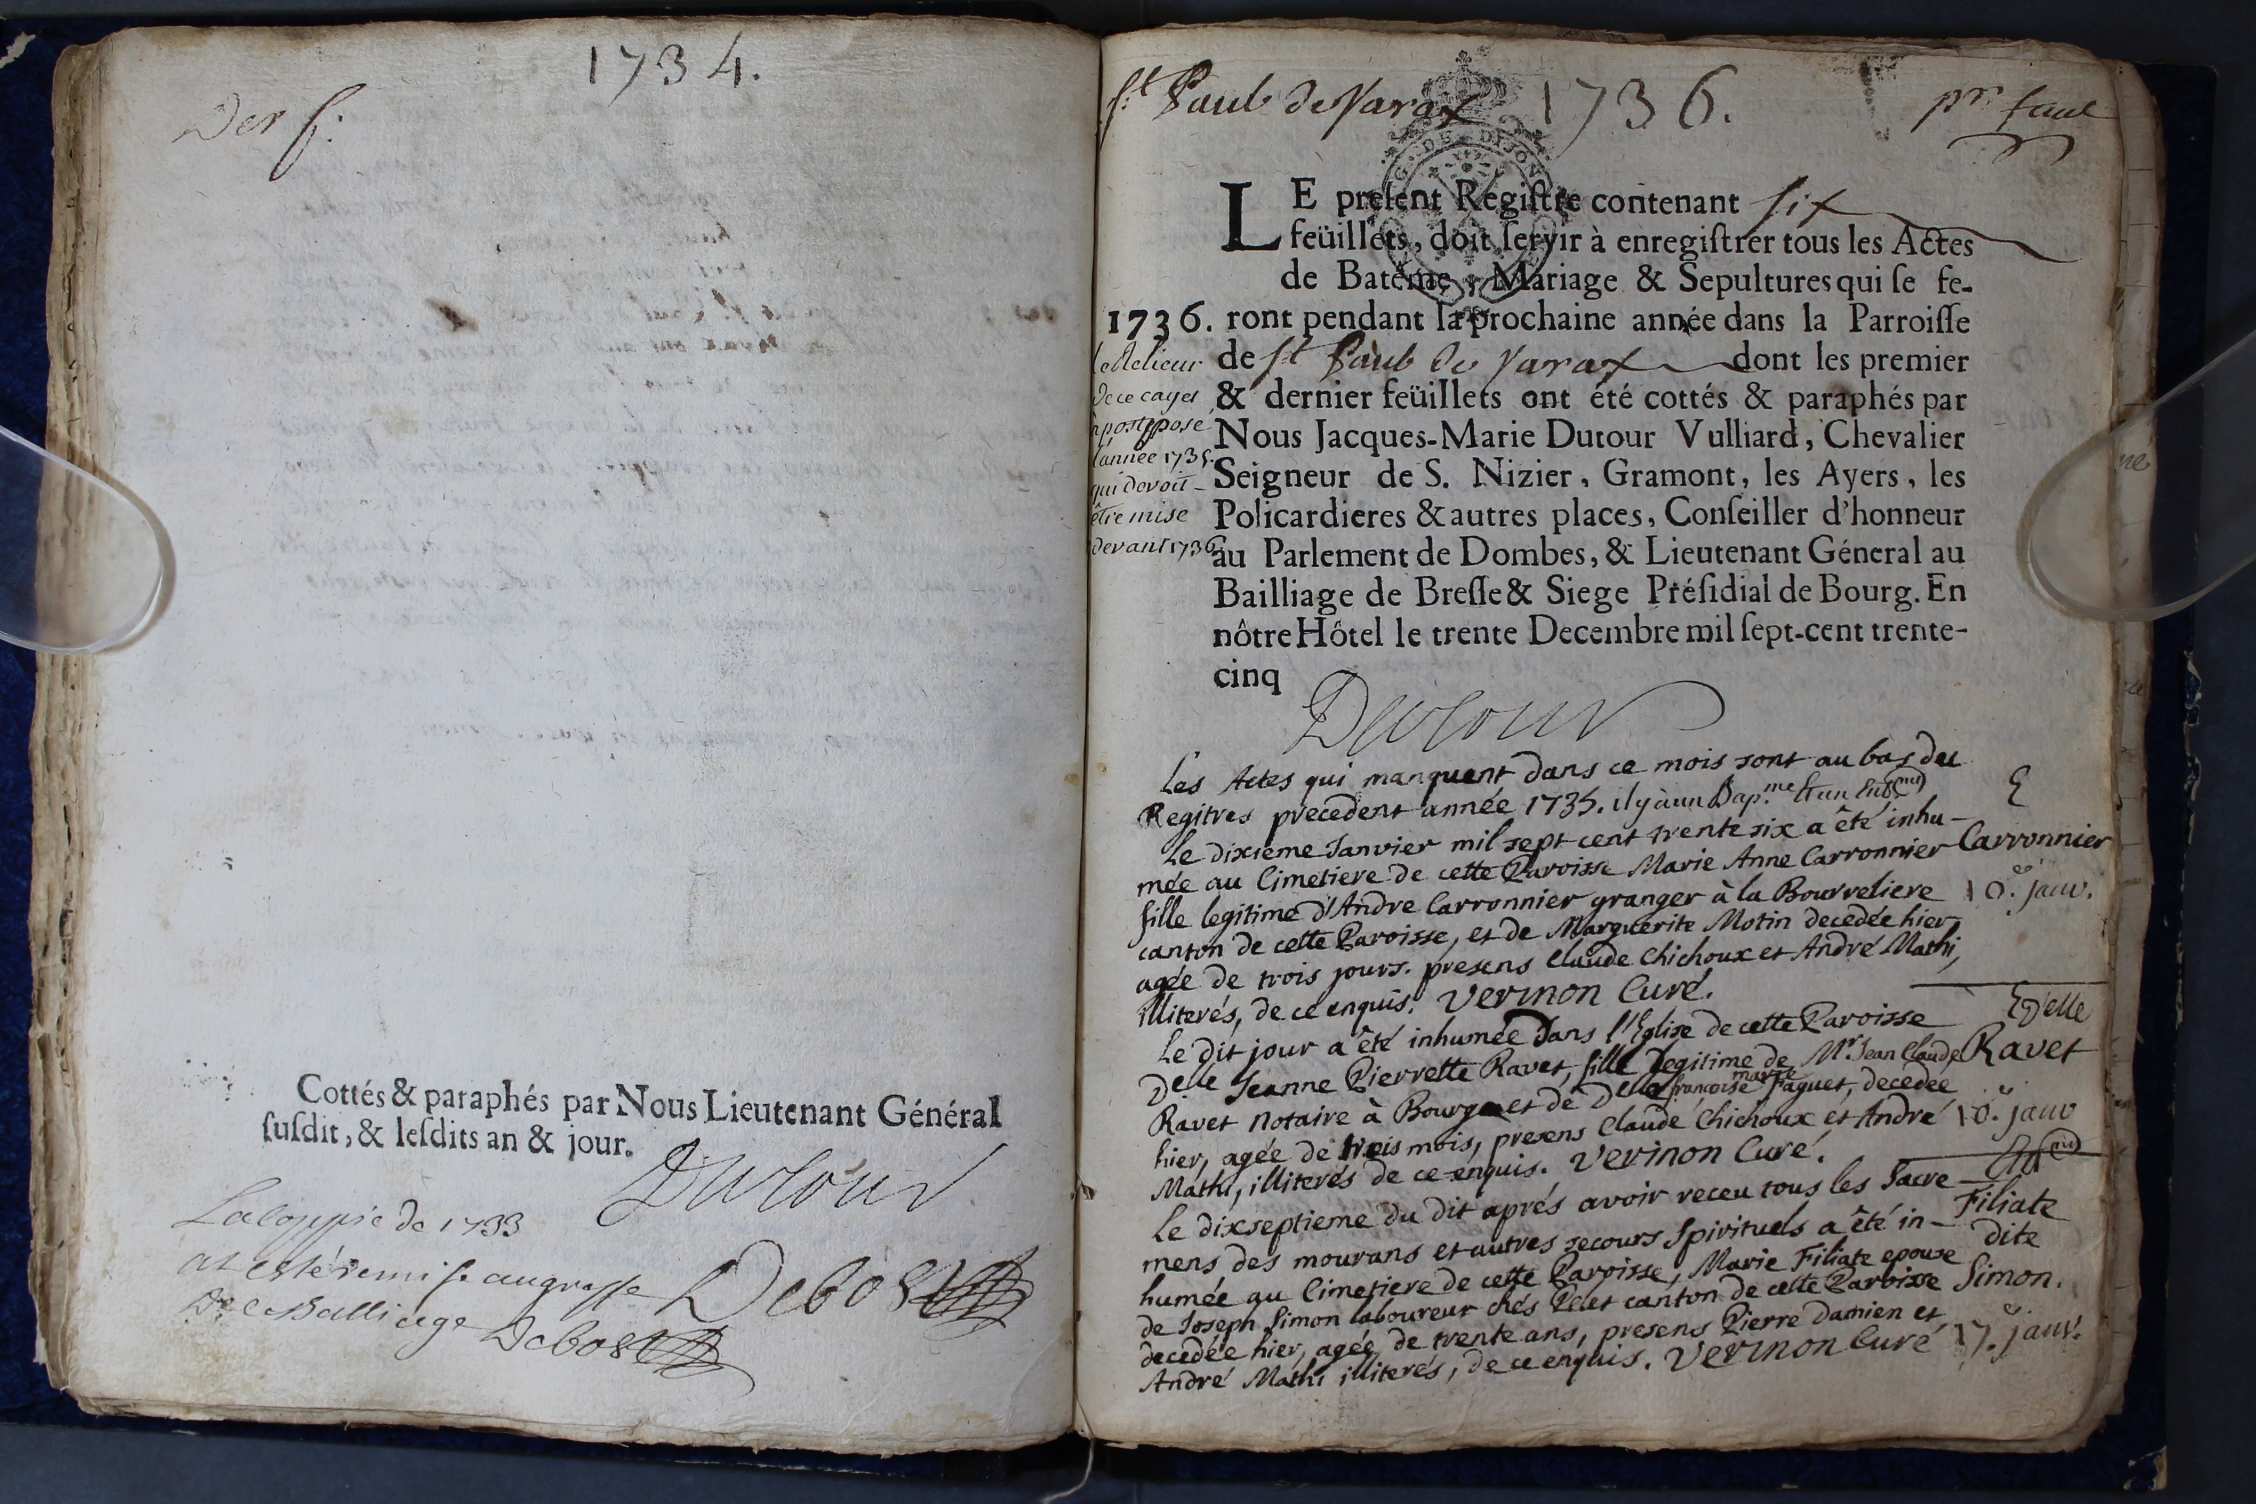 1734.
Der f:
Cottés & paraphés par Nous Lieutenant Général
ſuſdit, & leſdits an & jour.
Dutour
La coppie de 1733
at esté remise au greffe
De Balliage Debost
Debost
St Paul de Varax 1736. pr feuil
G. DE DIJON
LE preſent Regiſtre contenant six
feüillets, doit ſervir à enregiſtrer tous les Actes
de Batême, Mariage & Sepultures qui ſe fe-
1736. ront pendant la prochaine année dans la Parroiſſe
de St Paul de Varax dont les premier
& dernier feüillets ont été cottés & paraphés par
Nous Jacques-Marie Dutour Vulliard, Chevalier
Seigneur de S. Nizier, Gramont, les Ayers, les
Policardieres & autres places, Conſeiller d'honneur
au Parlement de Dombes, & Lieutenant Géneral au
Bailliage de Breſſe & Siege Préſidial de Bourg. En
nôtre Hôtel le trente Decembre mil ſept-cent trente-
cinq
le Relieur
de ce cayer
a postposé
l'année 1735.
qui devoit
être mise
devant 1736
Dutour
Les Actes qui manquent dans ce mois sont au bas du
Regitres precedent année 1735. il y à un Bap.me et un
Le dixieme Janvier mil sept cent trente six a êté inhu-
mée au Cimetiere de cette Paroisse Marie Anne Carronnier
fille legitime d'André Carronnier granger à la Bourreliere
canton de cette Paroisse, et de Marguerite Motin decedée hier
agée de trois jours. presens Claude Chichoux et André Mathi,
illiterés, de ce enquis. Verinon Curé.
Carronnier
10.e janv.
Le dit jour a êté inhumée dans l'Eglise de cette Paroisse
Delle Jeanne Pierrette Ravet, fille legitime de Mr. Jean Claude
Ravet Notaire à Bourg et de Delle françoise marie Faguet, decedée
hier, agée de trois mois, presens Claude Chichoux et André
Mathi, illiterés de ce enquis. Verinon Curé.
Delle
Ravet
10.e janv
Le dixseptieme du dit aprés avoir receu tous les Sacre-
mens des mourans et autres secours Spirituels a êté in-
humée au Cimetiere de cette Paroisse, Marie Filiate epouse
de Joseph Simon laboureur chés Pelet canton de cette Paroisse
decedée hier, agée de trente ans, presens Pierre Damien et
André Mathi illiterés, de ce enquis. Verinon Curé
Filiate
dite
Simon.
17.e janv.